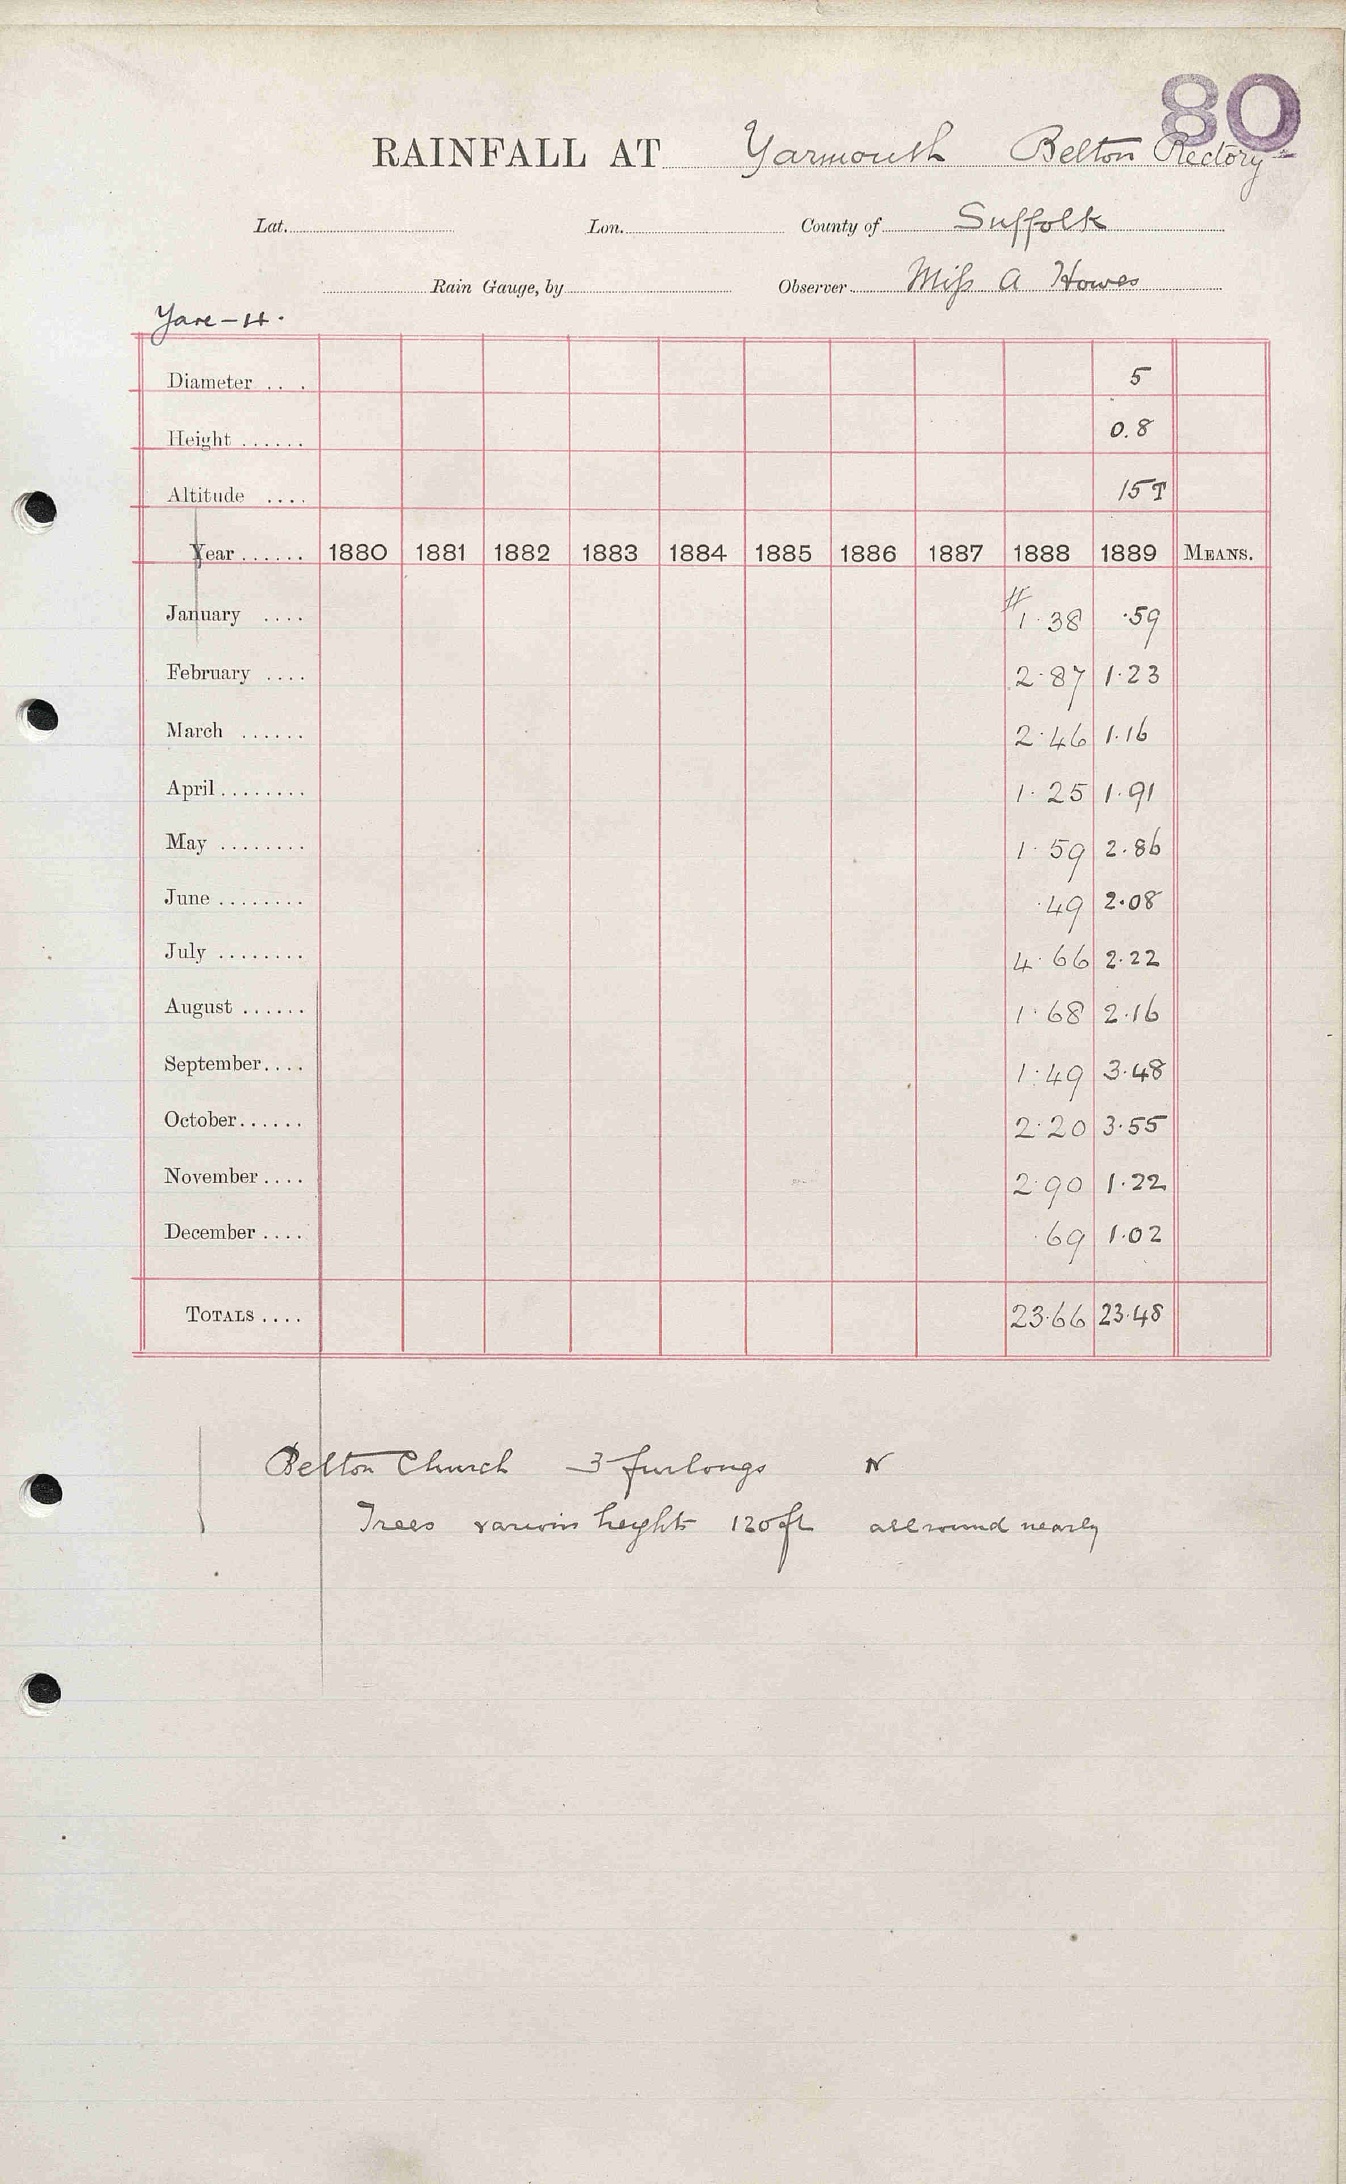 80
RAINFALL AT Yarmouth Belton Rectory
Lat. Lon. County of Suffolk
Rain Gauge, by Observer Miss A Howes
Yare - H.
Diameter ... 5
Height ...... 0.8
Altitude .... 15T
Year ...... 1880 1881 1882 1883 1884 1885 1886 1887 1888 1889 MEANS.
January .... 1.38 .59
February .... 2.87 1.23
March ...... 2.46 1.16
April ........ 1.25 1.91
May ........ 1.59 2.86
June ........ .49 2.08
July ........ 4.66 2.22
August ...... 1.68 2.16
September .... 1.49 3.48
October ...... 2.20 3.55
November .... 2.90 1.22
December .... .69 1.02
TOTALS .... 23.66 23.48
Belton Church 3 furlongs N
Trees various heights 120 ft all round nearly